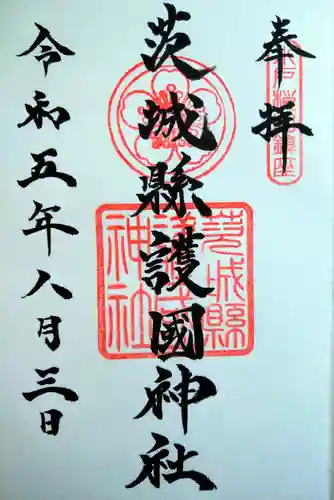 奉拝
茨城縣護國神社
令和五年八月三日
茨城縣護國神社